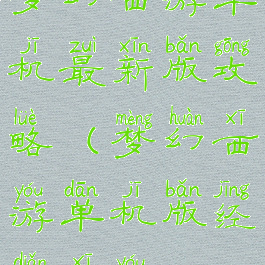 梦幻西游单
jī zuì xīn bǎn gōng
机最新版攻
lüè mèng huàn xī
略（梦幻西
yóu dān jī bǎn jīng
游单机版经
diǎn xī yóu